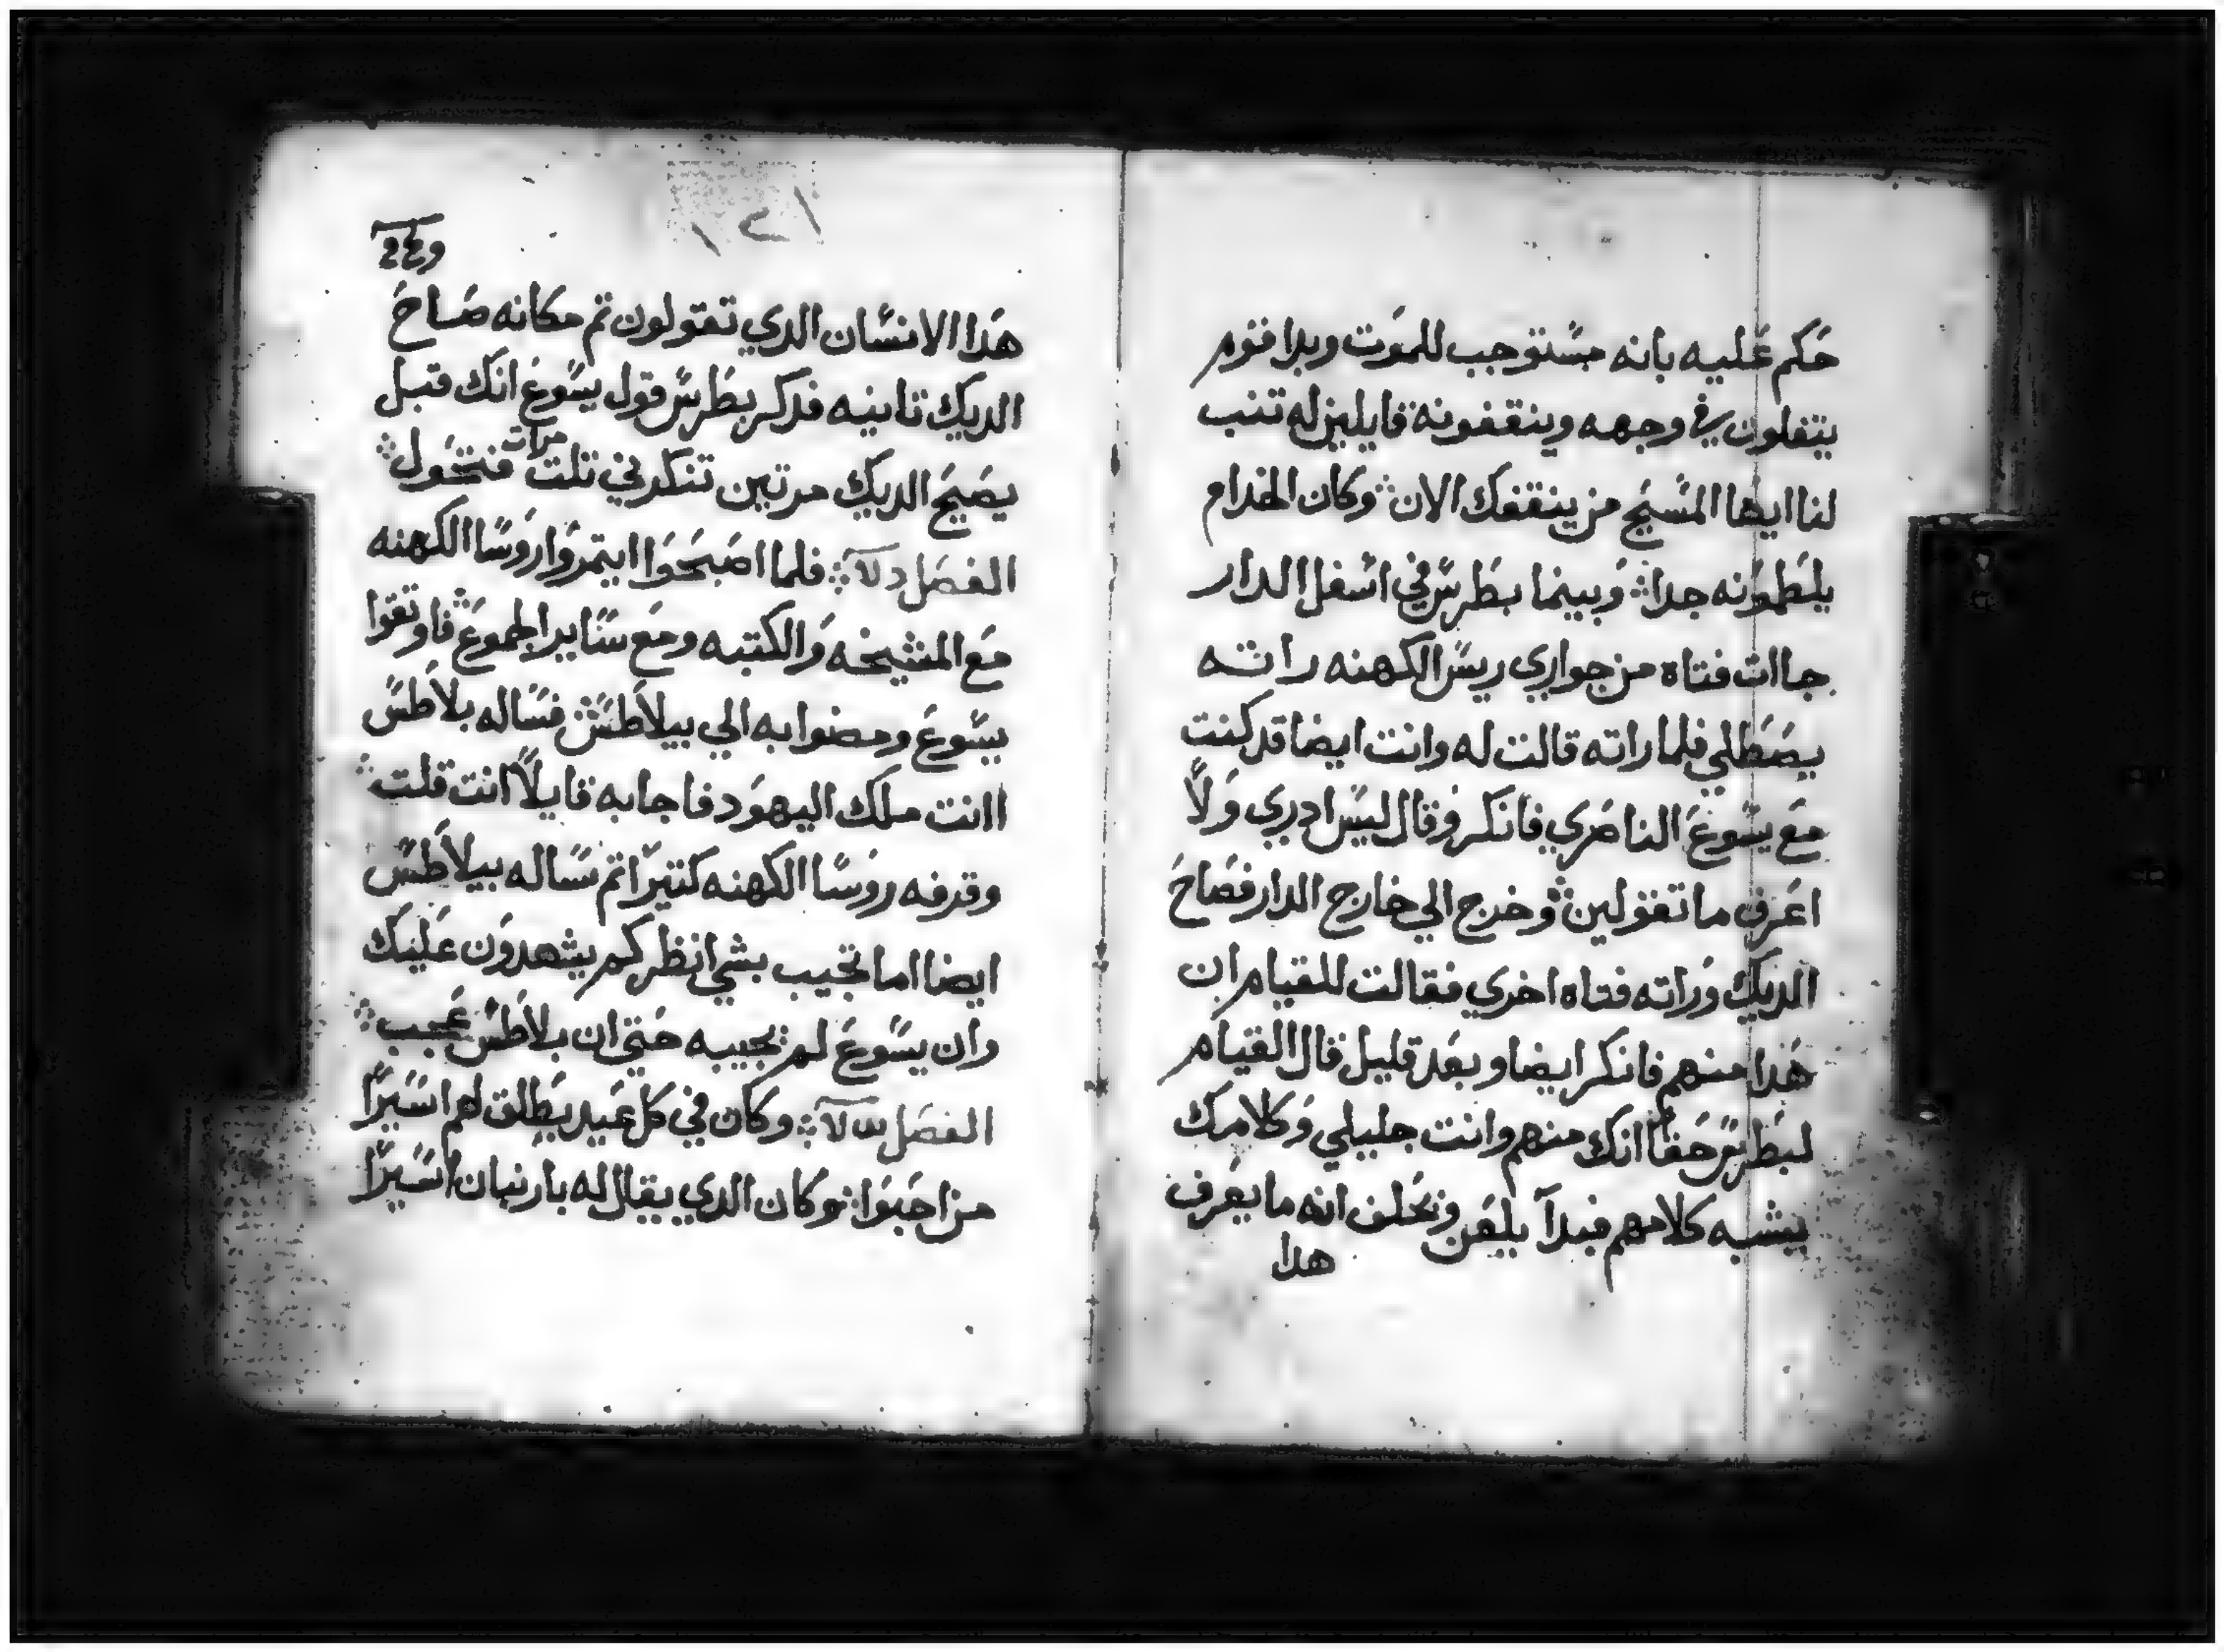 حكم عليه بانه مستوجب للموت وبدا قوم
يتفلون في وجهه وينقفونه قايلين له تنب
لنا ايها المسيح من ينقفك الان وكان الخدام
يلطمونه جدا وبينما بطرس في اسفل الدار
جاات فتاه من جواري ريس الكهنه راته
يصطلي فلما راته قالت له وانت ايضا قد كنت
مع يسوع الناصري فانكر وقال ليس ادري ولا
اعرف ما تقولين وخرج الي خارج الدار فصاح
الديك وراته فتاه اخري فقالت للقيام ان
هذا منهم فانكر ايضا وبعد قليل قال القيام
لبطرس حقا انك منهم وانت جليلي وكلامك
يشبه كلامهم فبدآ يلعن ويحلف انه ما يعرف
هدا
هدا الانسان الدي تقولون تم مكانه صاح
الديك تانيه فدكر بطرس قول يسوع انك قبل
يصيح الديك مرتين تنكرني تلت مرات
الفصل فلما اصبحوا ايتمروا روسا الكهنه
مع المشيخه والكتبه ومع ساير الجموع فاوتقوا
يسوع ومضوا به الي بيلاطس فساله بلاطس
اانت ملك اليهود فاجابه قايلا انت قلت
وقرفه روسا الكهنه كتيرا تم ساله بيلاطس
ايضا اما تجيب بشي انظر كم يشهدون عليك
وان يسوع لم يجيبه حتي ان بلاطس عجب
الفصل وكان في كل عيد يطلق لهم اسيرا
من احبوا وكان الدي يقال له بارنبان اسيرا